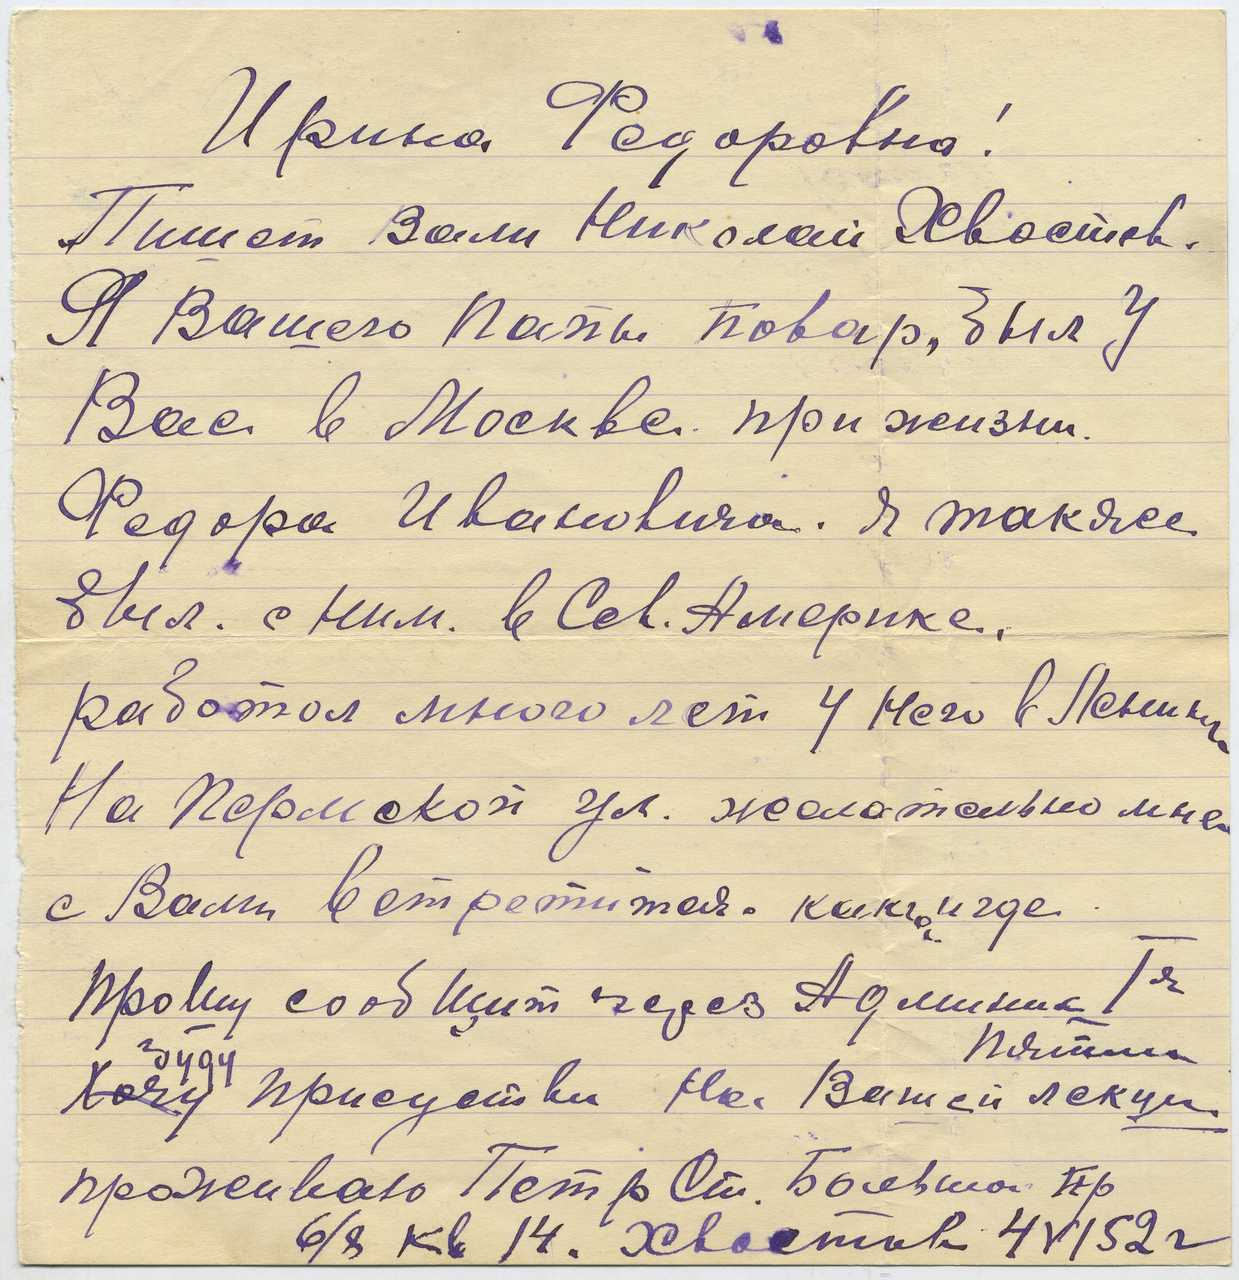 Ирина Федоровна!
Пишет Вам Николай Хвостов.
Я Вашего Папы повар, был У
Вас в Москве при жизни.
Федора Ивановича. я также
был. с ним. в Сев. Америке.
работал много лет у него в Ленингр
На Пермской ул. желательно мне
с Вами встретится. как и где
прошу сообщит через Админис
Пятни
буду
Хочу присустви На Вашей лекции
проживаю Петр Ст. Больша пр
6/8 кв 14. Хвостов 4 VI 52 г